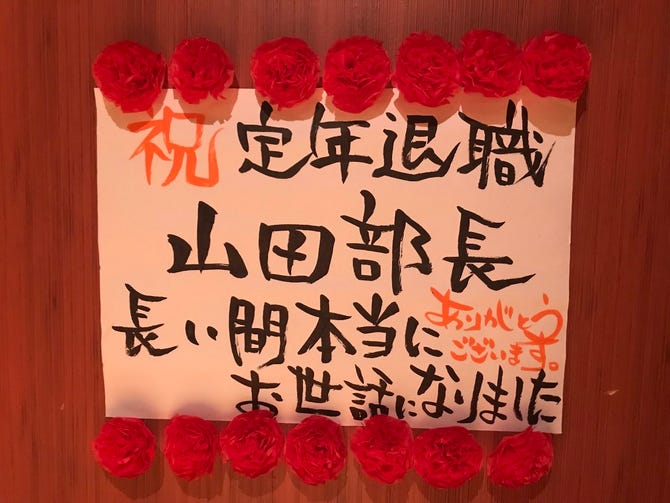 祝 定年退職
山田部長
長い間本当に
ありがとう
ございます。
お世話になりました